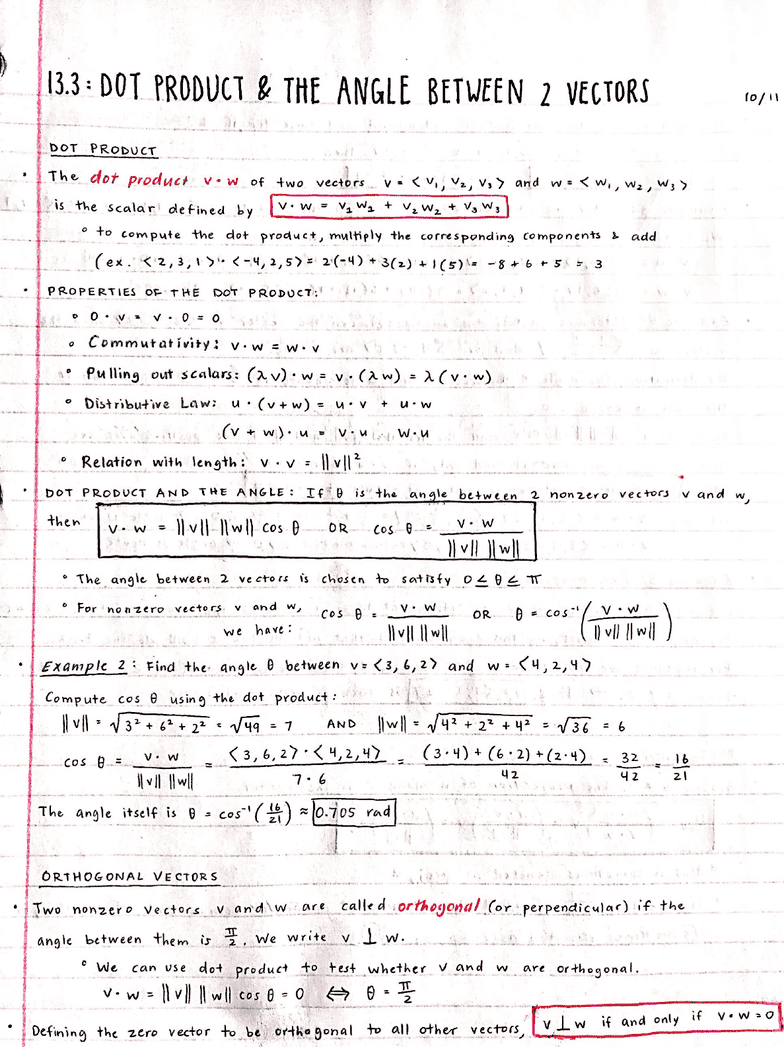 13.3: DOT PRODUCT & THE ANGLE BETWEEN 2 VECTORS
10/11
DOT PRODUCT
• The dot product v·w of two vectors v = <v₁, v₂, v₃> and w = <w₁, w₂, w₃>
is the scalar defined by v·w = v₁w₁ + v₂w₂ + v₃w₃
° to compute the dot product, multiply the corresponding components & add
(ex. <2,3,1> · <-4,2,5> = 2(-4) + 3(2) + 1(5) = -8 + 6 + 5 = 3
• PROPERTIES OF THE DOT PRODUCT:
° 0 · v = v · 0 = 0
° Commutativity: v·w = w·v
° Pulling out scalars: (λv)·w = v·(λw) = λ(v·w)
° Distributive Law: u·(v+w) = u·v + u·w
(v+w)·u = v·u w·u
° Relation with length: v·v = ||v||²
• DOT PRODUCT AND THE ANGLE: If θ is the angle between 2 nonzero vectors v and w,
then v·w = ||v|| ||w|| cos θ OR cos θ = v·w / ||v|| ||w||
° The angle between 2 vectors is chosen to satisfy 0 ≤ θ ≤ π
° For nonzero vectors v and w, we have: cos θ = v·w / ||v|| ||w|| OR θ = cos⁻¹(v·w / ||v|| ||w||)
• Example 2: Find the angle θ between v = <3,6,2> and w = <4,2,4>
Compute cos θ using the dot product:
||v|| = √(3² + 6² + 2²) = √49 = 7 AND ||w|| = √(4² + 2² + 4²) = √36 = 6
cos θ = v·w / ||v|| ||w|| = <3,6,2>·<4,2,4> / 7·6 = (3·4) + (6·2) + (2·4) / 42 = 32/42 = 16/21
The angle itself is θ = cos⁻¹(16/21) ≈ 0.705 rad
ORTHOGONAL VECTORS
• Two nonzero vectors v and w are called orthogonal (or perpendicular) if the
angle between them is π/2. We write v ⊥ w.
° We can use dot product to test whether v and w are orthogonal.
v·w = ||v|| ||w|| cos θ = 0 ⇔ θ = π/2
• Defining the zero vector to be orthogonal to all other vectors, v ⊥ w if and only if v·w = 0